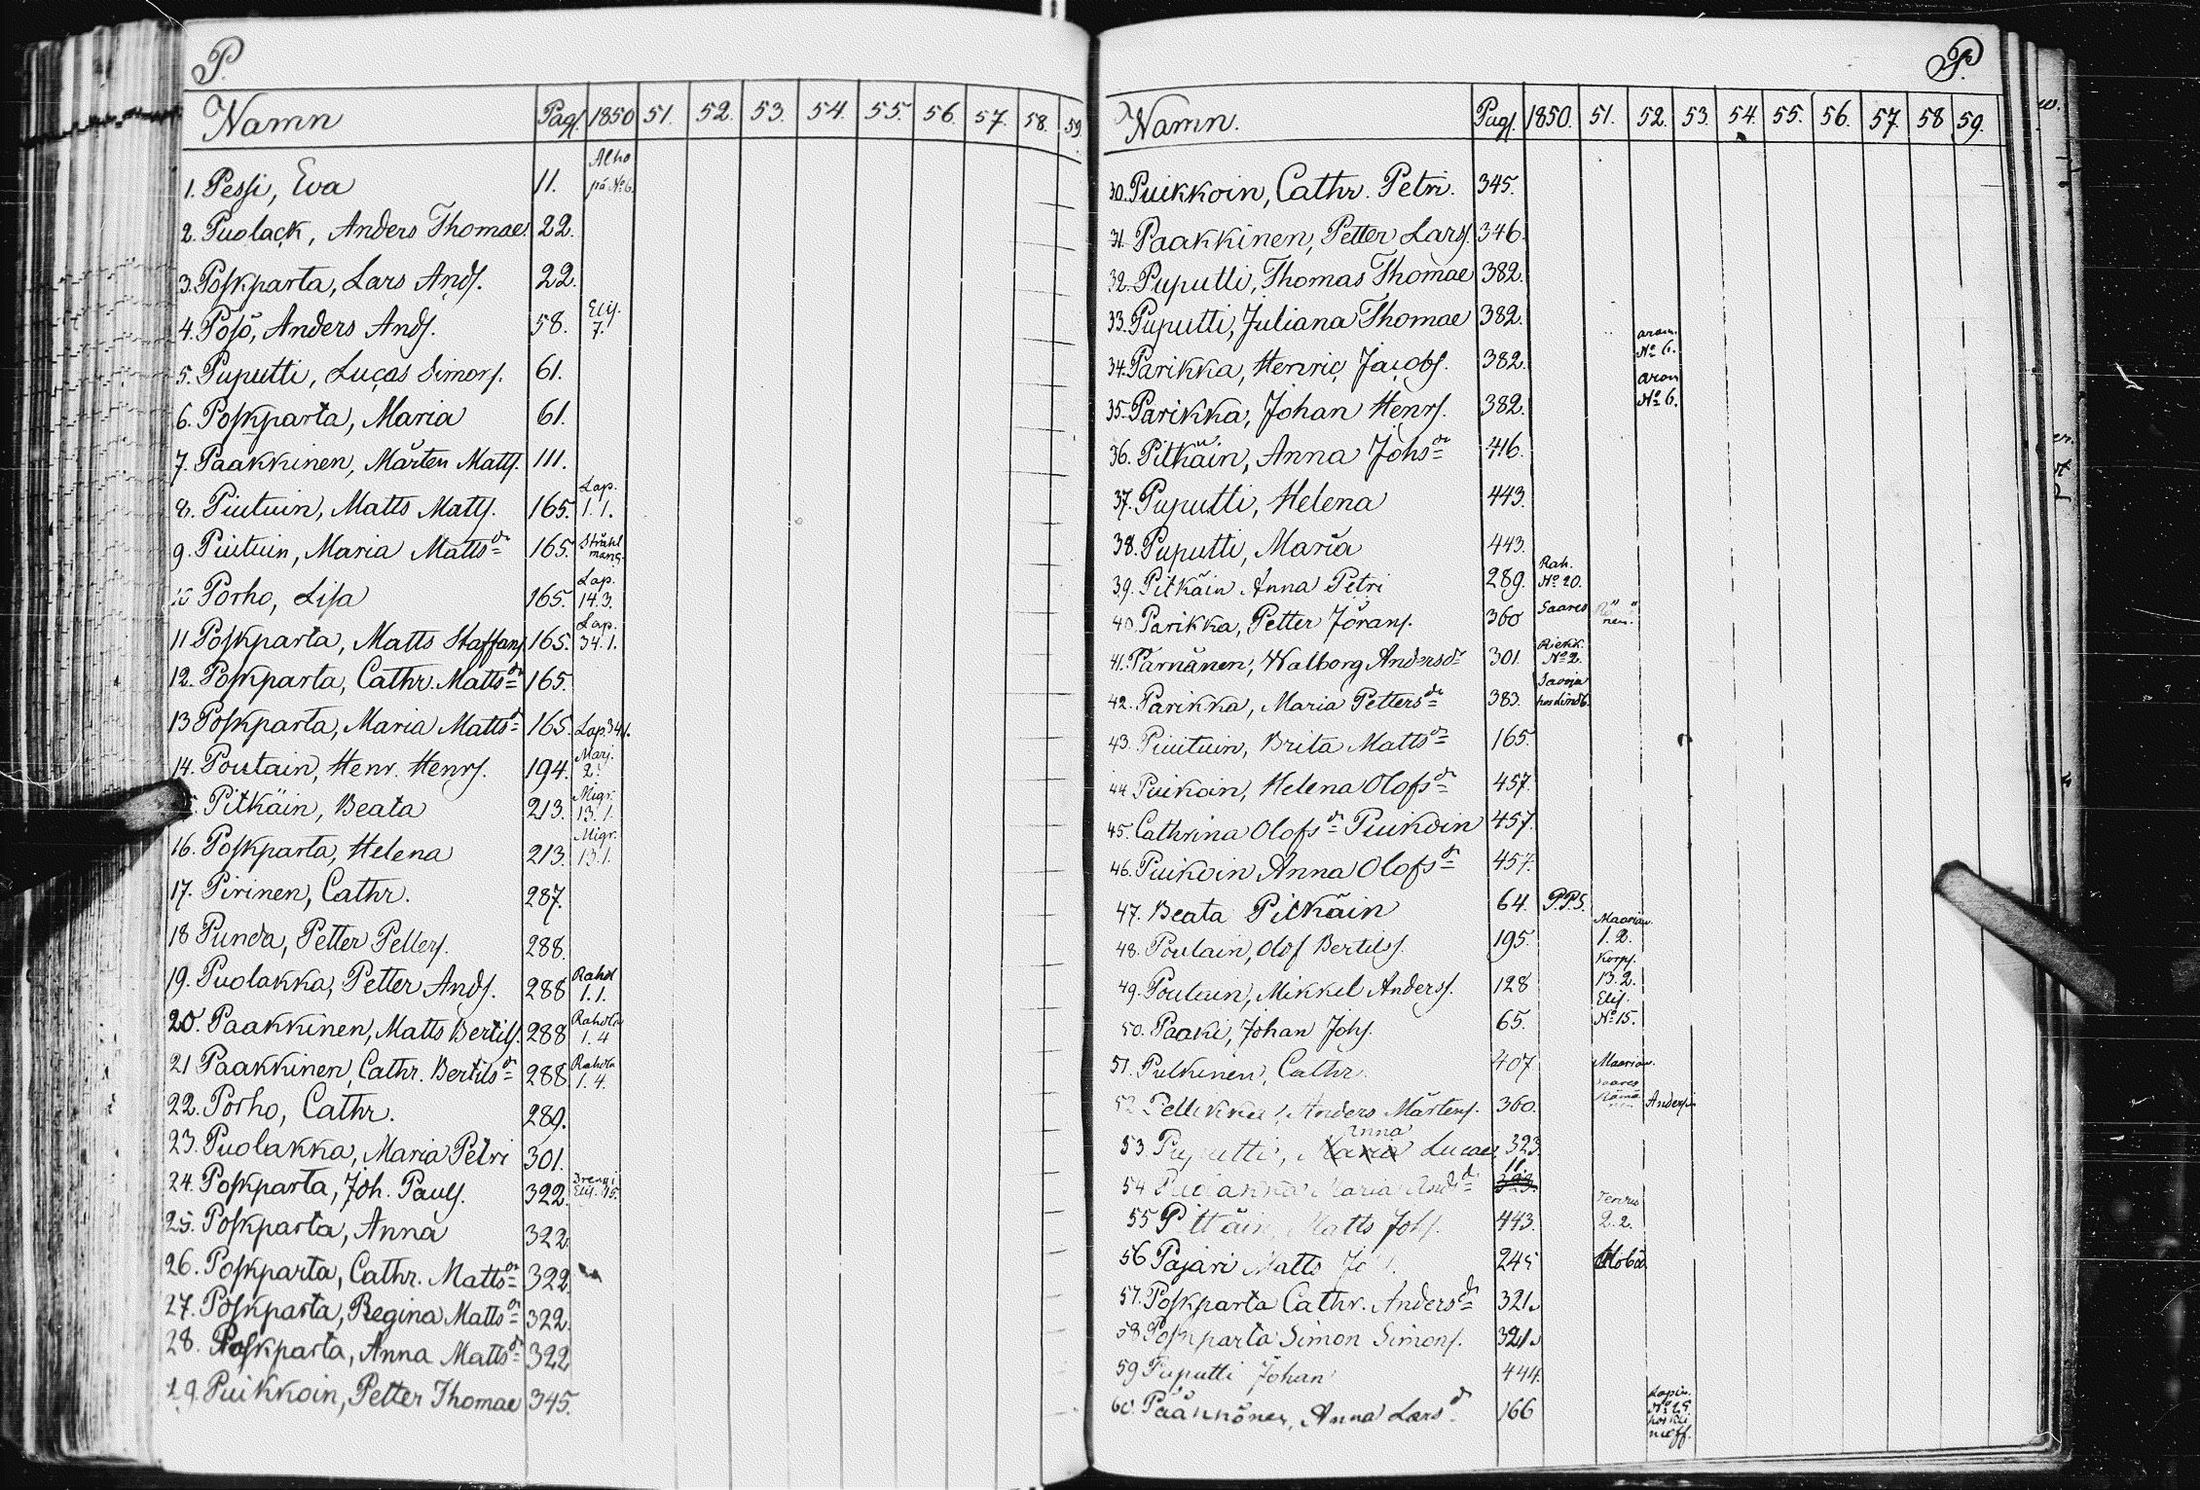 P.
Namn Pag. 1850 51. 52. 53. 54. 55. 56. 57. 58. 59.
1. Pessi, Eva 11. Alho på No 6.
2. Puolack, Anders Thomae. 22.
3. Poskparta, Lars Ands. 22.
4. Posö, Anders Ands. 58. Elis. 7.
5. Puputti, Lucas Simons. 61.
6. Poskparta, Maria 61.
7. Paakkinen, Mårten Matts. 111.
8. Piutuin, Matts Matts. 165. Lap. 1. 1.
9. Piutuin, Maria Mattsdr 165. Stråhlmans.
10 Porho, Lisa 165. Lap. 14. 3.
11 Poskparta, Matts Staffans. 165. Lap. 34. 1.
12. Poskparta, Cathr. Mattsdr 165.
13 Poskparta, Maria Mattsdr 165. Lap. 34.1.
14. Poutain, Henr. Henrs. 194. Marj. 2.
Pitkäin, Beata 213. Migr. 13. 1.
16. Poskparta, Helena 213. Migr. 13.1.
17. Pirinen, Cathr. 287.
18 Punda, Petter Petters. 288.
19. Puolakka, Petter Ands. 288 Rahol 1. 1.
20. Paakkinen, Matts Bertils. 288 Rahola 1. 4
21 Paakkinen, Cathr. Bertilsdr 288. Rahola 1. 4.
22. Porho, Cathr. 289.
23. Puolakka, Maria Petri 301.
24. Poskparta, Joh. Pauls. 322. Dreng i Elis. 15.
25. Poskparta, Anna 322.
26. Poskparta, Cathr. Mattsdr 322.
27. Poskparta, Regina Mattsdr 322.
28. Poskparta, Anna Mattsdr 322
29. Puikkoin, Petter Thomae 345.
P.
Namn. Pag. 1850. 51. 52. 53. 54. 55. 56. 57. 58 59.
30. Puikkoin, Cathr. Petri. 345.
31. Paakkinen, Petter Lars. 346.
32. Puputti, Thomas Thomae 382.
33. Puputti, Juliana Thomae 382.
34. Parikka, Henric Jacobs. 382. aron. No 6.
35. Parikka, Johan Henrs. 382. aron No 6.
36. Pitkäin, Anna Johsdr 416.
37. Puputti, Helena 443.
38. Puputti, Maria 443.
39. Pitkäin Anna Petri 289. Rah. No 20.
40. Parikka, Petter Jörans. 360 Saares
41. Pärnänen, Walborg Andersdr 301. Riekk. No 2.
42. Parikka, Maria Pettersdr 383. Savoja hos Lindb.
43. Piuituin, Brita Mattsdr 165.
44 Puikoin, Helena Olofsdr 457.
45. Cathrina Olofsdr Puikoin 457.
46. Puikoin Anna Olofsdr 457.
47. Beata Pitkäin 64. P.P.S.
48. Poutain, Olof Bertils. 195. Maarian. 1. 2.
49. Poutain, Mikkel Anders. 128 Korps. 13. 2.
50. Paaki, Johan Johs. 65. Elis. No 15.
51. Pulkinen, Cathr. 407 Maarian.
52 Pellikka, Anders Mårtens. 360. Saares
53. Puputti, Maria Anna Lucae. 323.
54 Puolakka Maria Andsdr 11. 323.
55 Pitkäin, Matts Johs. 443. 2. 2.
56 Pajari Matts 245
57. Poskparta Cathr. Andersdr 321.
58 Poskparta Simon Simons. 321.
59 Puputti Johan 444.
60. Päännönen, Anna Larsdr 166 Lapin.